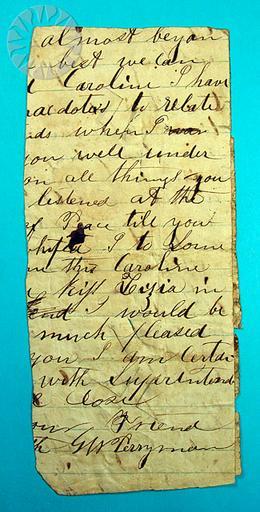 almost beyon
best we can
Caroline I have
acdotes to relate
ds when I
you well under
in all things you
listened at the
of Peace till you
I to some
this Caroline
Kiss Lizia in
end I would be
much pleased
you I am certai
with Superintend
Close
Friend
G W Perryman